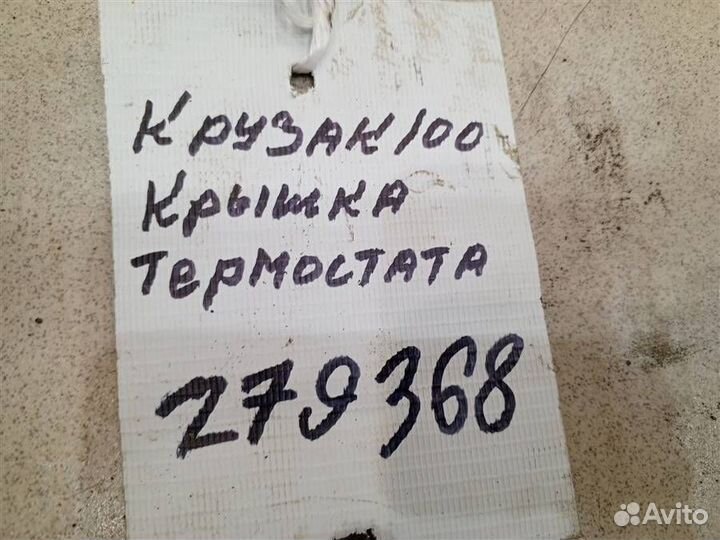 Крузак 100
Крышка
термостата
279368
Avito